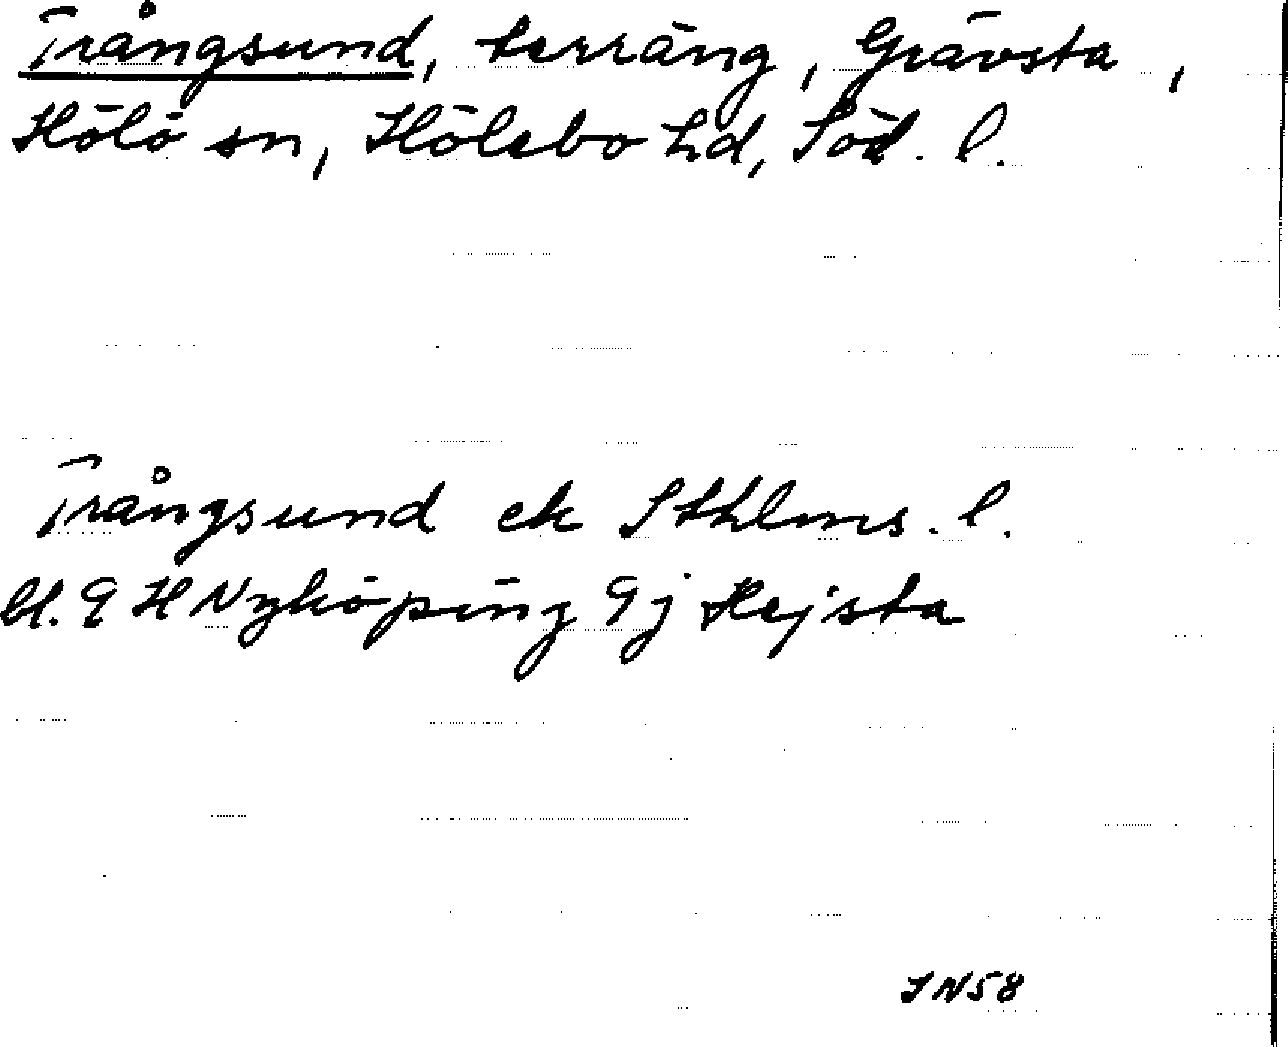 Trångsund, terräng, Grävsta,
Hölö sn, Hölebo hd, Söd. l.
Trångsund ek Sthlms. l.
bl. 9 H Nyköping 9j Hejsta
IN58